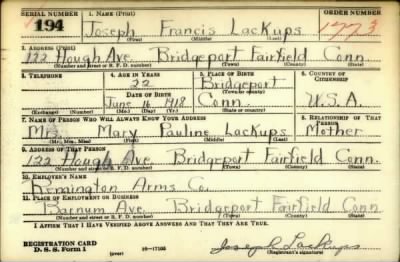 SERIAL NUMBER 1. NAME (Print) ORDER NUMBER
194 Joseph Francis Lackups 1773
(First) (Middle) (Last)
2. ADDRESS (Print)
122 Hough Ave. Bridgeport Fairfield Conn.
(Number and street or R. F. D. number) (Town) (County) (State)
3. TELEPHONE 4. AGE IN YEARS 5. PLACE OF BIRTH 6. COUNTRY OF CITIZENSHIP
22 Bridgeport
DATE OF BIRTH (Town or county)
June 16 1918 Conn. U.S.A.
(Exchange) (Number) (Mo.) (Day) (Yr.) (State or country)
7. NAME OF PERSON WHO WILL ALWAYS KNOW YOUR ADDRESS 8. RELATIONSHIP OF THAT PERSON
Mrs. Mary Pauline Lackups Mother
(Mr., Mrs., Miss) (First) (Middle) (Last)
9. ADDRESS OF THAT PERSON
122 Hough Ave. Bridgeport Fairfield Conn.
(Number and street or R. F. D. number) (Town) (County) (State)
10. EMPLOYER'S NAME
Remington Arms Co.
11. PLACE OF EMPLOYMENT OR BUSINESS
Barnum Ave. Bridgeport Fairfield Conn
(Number and street or R. F. D. number) (Town) (County) (State)
I AFFIRM THAT I HAVE VERIFIED ABOVE ANSWERS AND THAT THEY ARE TRUE.
REGISTRATION CARD
D. S. S. Form 1 (over) 16-17105 Joseph Lackups
(Registrant's signature)